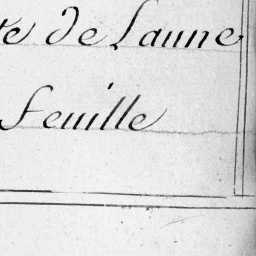 te de Laune
feuille